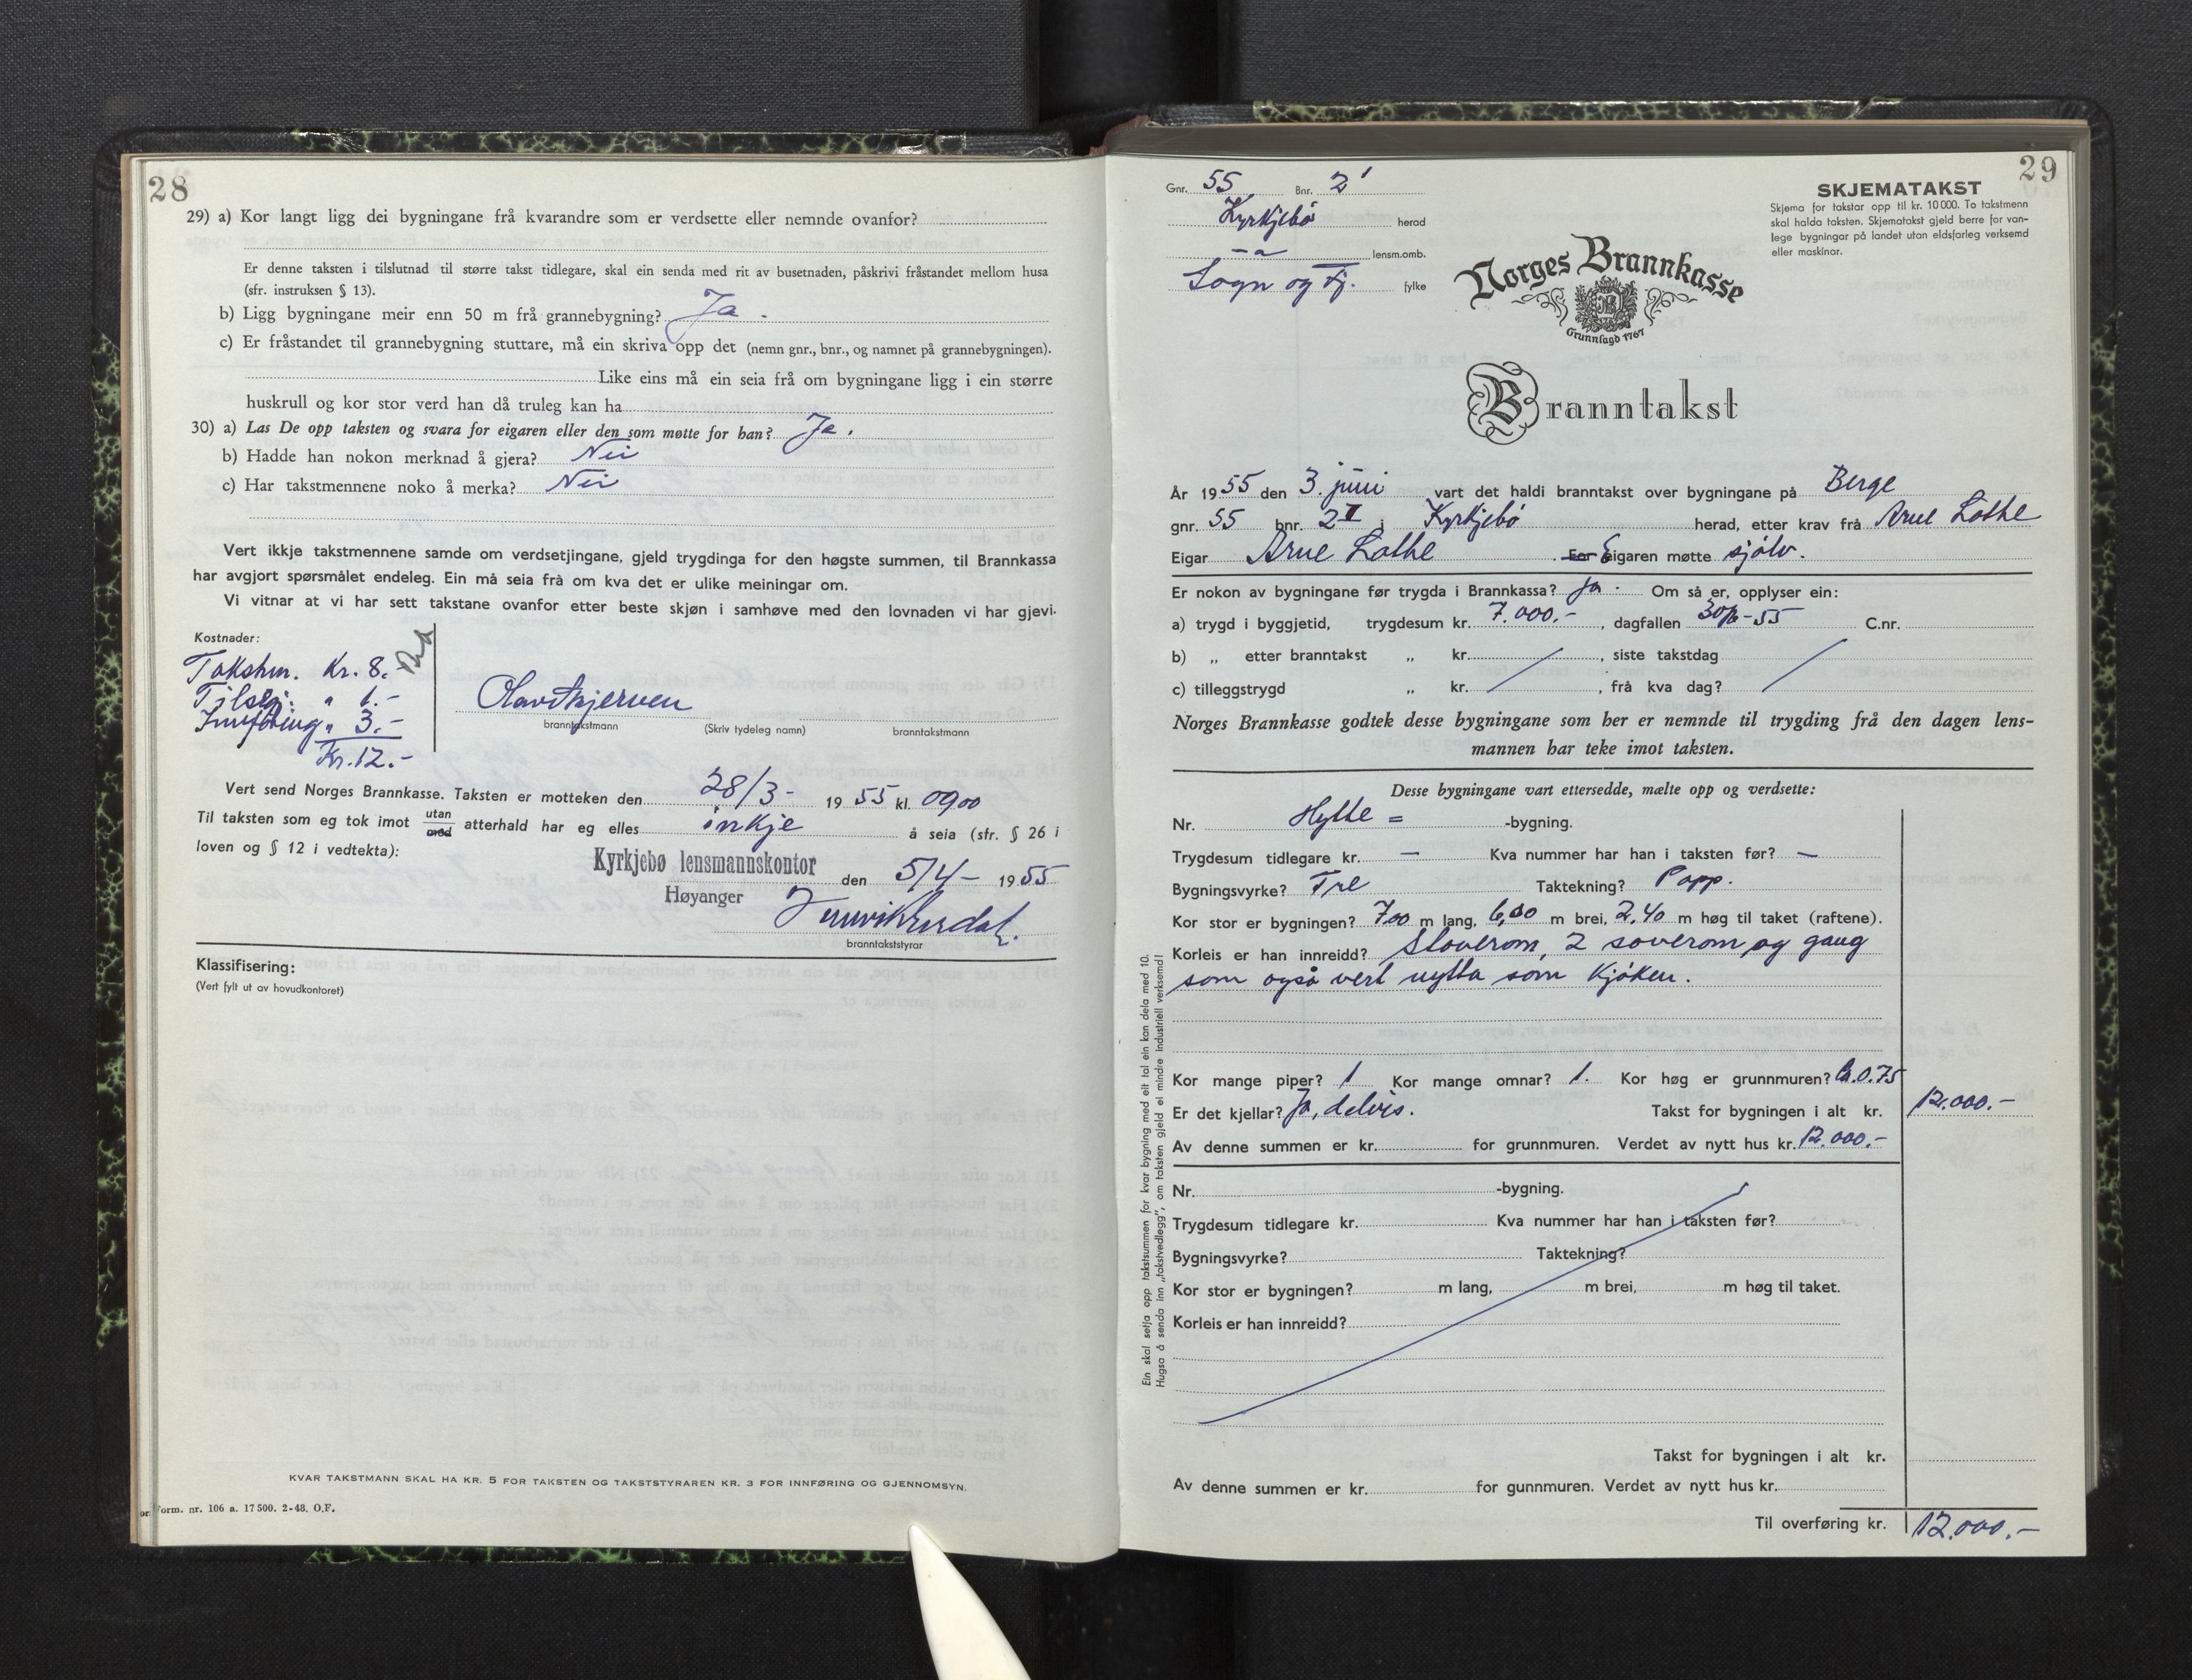 28
29) a) Kor langt ligg dei bygningane frå kvarandre som er verdsette eller nemnde ovanfor?
Er denne taksten i tilslutnad til større takst tidlegare, skal ein senda med rit av busetnaden, påskrivi fråstandet mellom husa
(sfr. instruksen § 13).
b) Ligg bygningane meir enn 50 m frå grannebygning? Ja.
c) Er fråstandet til grannebygning stuttare, må ein skriva opp det (nemn gnr., bnr., og namnet på grannebygningen).
Like eins må ein seia frå om bygningane ligg i ein større
huskrull og kor stor verd han då truleg kan ha
30) a) Las De opp taksten og svara for eigaren eller den som møtte for han? Ja.
b) Hadde han nokon merknad å gjera? Nei
c) Har takstmennene noko å merka? Nei
Vert ikkje takstmennene samde om verdsetjingane, gjeld trygdinga for den høgste summen, til Brannkassa
har avgjort spørsmålet endeleg. Ein må seia frå om kva det er ulike meiningar om.
Vi vitnar at vi har sett takstane ovanfor etter beste skjøn i samhøve med den lovnaden vi har gjevi.
Kostnader:
Takstm. Kr. 8.-
Tilseg: " 1.-
Innföring " 3.-
Kr. 12.-
Olav Skjerven
branntakstmann (Skriv tydeleg namn) branntakstmann
Vert send Norges Brannkasse. Taksten er motteken den 28/3- 1955 kl. 0900
Til taksten som eg tok imot utan/med atterhald har eg elles inkje å seia (sfr. § 26 i
loven og § 12 i vedtekta):
Kyrkjebø lensmannskontor den 5/4- 1955
Høyanger
branntakststyrar
Klassifisering:
(Vert fylt ut av hovudkontoret)
KVAR TAKSTMANN SKAL HA KR. 5 FOR TAKSTEN OG TAKSTSTYRAREN KR. 3 FOR INNFØRING OG GJENNOMSYN.
Form. nr. 106 a. 17 500. 2-48. O.F.
29
Gnr. 55 Bnr. 2
Kyrkjebö herad
lensm.omb.
Sogn og Fj. fylke
SKJEMATAKST
Skjema for takstar opp til kr. 10 000. To takstmenn
skal halda taksten. Skjematakst gjeld berre for van-
lege bygningar på landet utan eldsfarleg verksemd
eller maskinar.
Norges Brannkasse
Grunnlagd 1767
Branntakst
År 1955 den 3. juni vart det haldi branntakst over bygningane på Berge
gnr. 55 bnr. 2 i Kyrkjebö herad, etter krav frå Arne Lothe
Eigar Arne Lothe For Eigaren møtte sjölv.
Er nokon av bygningane før trygda i Brannkassa? Ja. Om så er, opplyser ein:
a) trygd i byggjetid, trygdesum kr. 7.000.-, dagfallen 30/6-55 C.nr.
b) „ etter branntakst „ kr. , siste takstdag
c) tilleggstrygd „ kr. , frå kva dag?
Norges Brannkasse godtek desse bygningane som her er nemnde til trygding frå den dagen lens-
mannen har teke imot taksten.
Desse bygningane vart ettersedde, mælte opp og verdsette:
Nr. Hytte = -bygning.
Trygdesum tidlegare kr. — Kva nummer har han i taksten før? —
Bygningsvyrke? Tre Taktekning? Papp.
Kor stor er bygningen? 7,00 m lang, 6,00 m brei, 2,40 m høg til taket (raftene).
Korleis er han innreidd? Stoverom, 2 soverom og gang
som også vert nytta som kjöken.
Kor mange piper? 1 Kor mange omnar? 1. Kor høg er grunnmuren? ca. 0.75
Er det kjellar? Ja, delvis. Takst for bygningen i alt kr. 12.000.-
Av denne summen er kr. for grunnmuren. Verdet av nytt hus kr. 12.000.-
Nr. -bygning.
Trygdesum tidlegare kr. Kva nummer har han i taksten før?
Bygningsvyrke? Taktekning?
Kor stor er bygningen? m lang, m brei, m høg til taket.
Korleis er han innreidd?
Takst for bygningen i alt kr.
Av denne summen er kr. for gunnmuren. Verdet av nytt hus kr.
Til overføring kr. 12.000.-
Ein skal setja opp takstsummen for kvar bygning med eit tal ein kan dela med 10.
Hugsa å senda inn „takstvedlegg", om taksten gjeld ei mindre industriell verksemd!